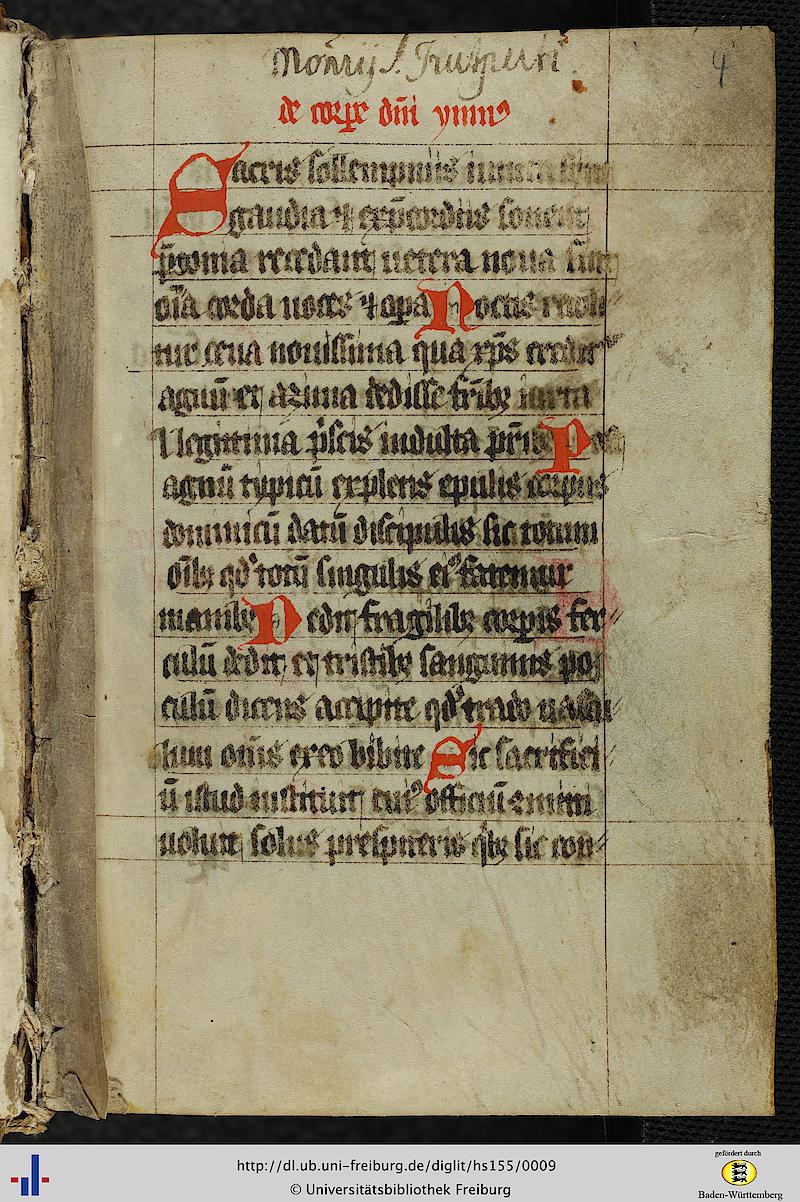 Monrij S. Trutperti.
4
de corpe dn̄i ymnꝰ
Sacris sollempniis iuncta sint
gaudia ⁊ ex p̄cordiis sonent
p̄conia recedant uetera noua sint
oīa corda uoces ⁊ opa Noctis recoli
tur cena nouissima qua xp̄s credit᷑
agnū et azima dedisse fr̄ibꝫ iuxta
legittima p̄scis indulta pr̄ibꝫ Post
agnū typicū expletis epulis corpus
dominicū datū discipulis sic totum
oībꝫ qd̓ totū singulis eiꝰ fatemur
manibꝫ Dedit fragilibꝫ corpis fer
culū dedit et tristibꝫ sanguinis po
culū dicens accipite qd̓ trado uascu
lum om̄s ex eo bibite Sic sacrifici
ū istud instituit cuiꝰ officiū cōmitti
uoluit solis presbiteris qͥbꝫ sic con
http://dl.ub.uni-freiburg.de/diglit/hs155/0009
© Universitätsbibliothek Freiburg
gefördert durch
Baden-Württemberg